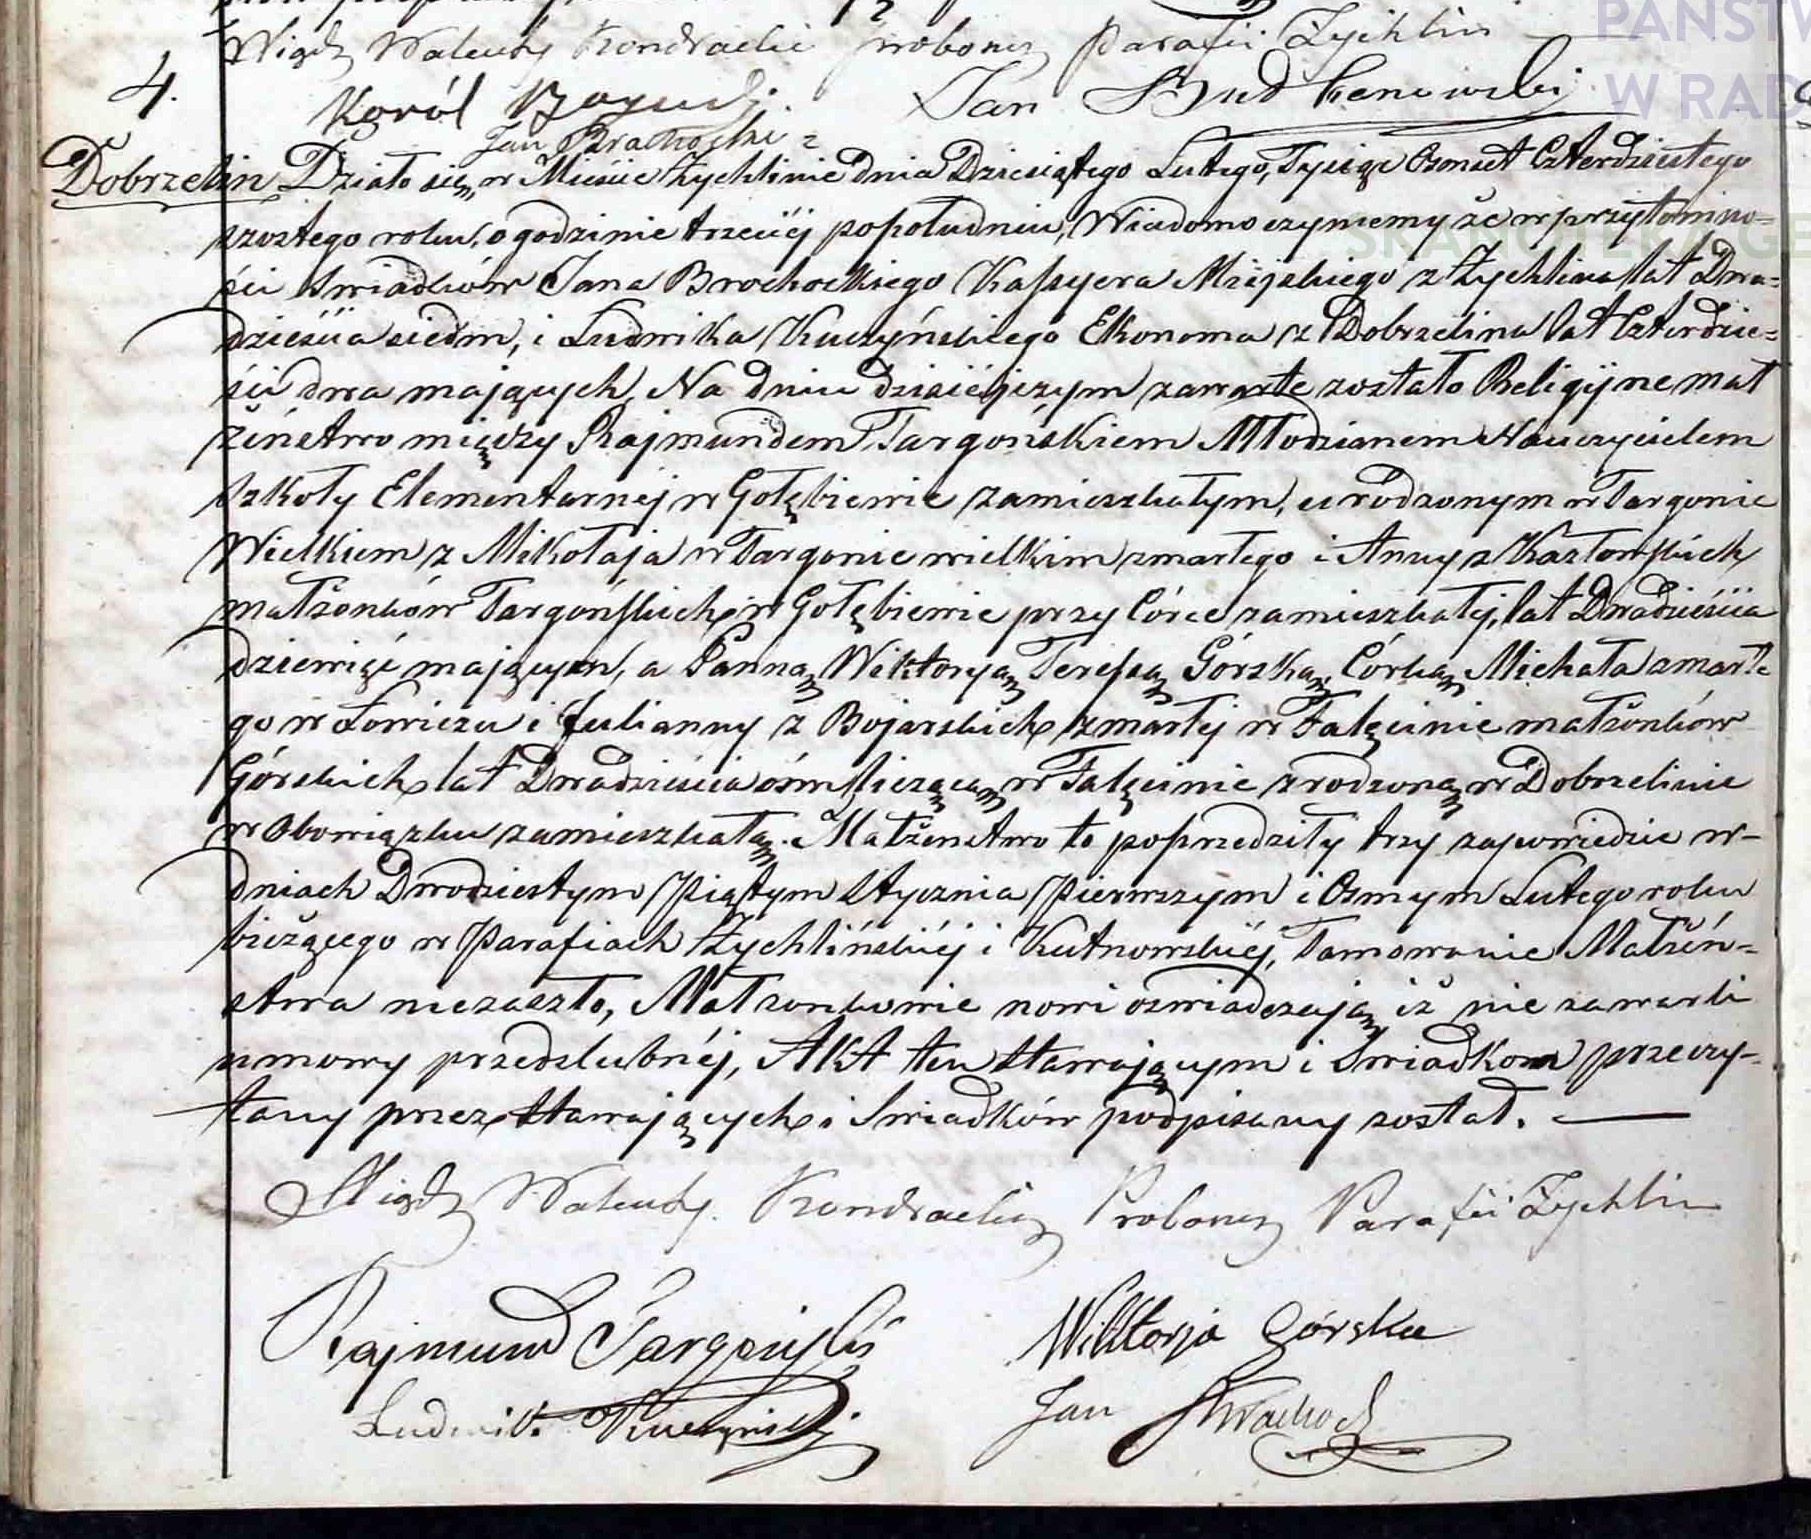 Xiądz Walenty Kondracki proboszcz Parafii Żychlin
4.
Karól Jan
Jan Brochocki
Dobrzelin Działo się, w Mieście Żychlinie dnia Dziesiątego Lutego, Tysiąc Osmset Czterdziestego
szostego roku, o godzinie trzeciéj popołudniu, Wiadomo czyniemy że w przytomno=
ści Swiadków Jana Brochockiego Kassyera Miéjskiego z Żychlina lat Dwa=
dzieścia siedm, i Ludwika Kuczyńskiego Ekonoma z Dobrzelina lat Czterdzie=
ści dwa mających, Na dniu dzisiéjszym zawarte zostało Religijne mał
żeństwo między Rajmundem Targońskiem Młodzianem Nauczycielem
Szkoły Elementarnéj w Gołębiewie zamieszkałym, urodzonym w Targonie
Wielkiem z Mikołaja w Targonie wielkim zmarłego i Anny z
małżonków Targońskich w Gołębiewie przy Córce zamieszkałéj, lat Dwadzieścia
dziewięć mającym, a Panną Wiktoryą Teressą Górską, Córką Michała zmarłe
go w Łowiczu i Julianny z Bojarskich zmarłéj w Falęcinie małżonków
Górskich lat Dwadzieścia ośm liczącą w Falęcinie zrodzoną w Dobrzelinie
w Obowiązku zamieszkałą. Małżenstwo to poprzedziły trzy zapowiedzie w-
dniach Dwodziestym Piątym Stycznia Pierwszym i Osmym Lutego roku
bieżącego w Parafiach Żychlińskiéj i Kutnowskiéj, Tamowanie Małżeń=
stwa niezaszło, Małzonkowie nowi oswiadczają iż nie zawarli
umowy przedslubnéj, Akt ten Stawającym i Swiadkom przeczy-
tany przez Stawających i Swiadków podpisany został.
Xiądz Walenty Kondracki Proboszcz Parafii Żychlin
Rajmund Targoński Wiktorja Górska
Ludwik Kuczyński Jan Brochocki
PAŃSTW
W RAD